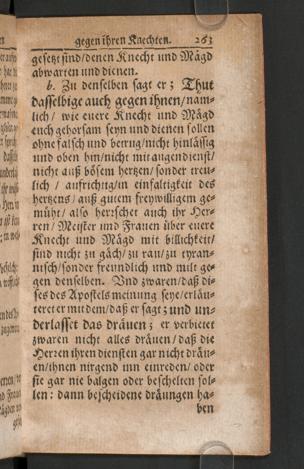 gegen ihren Knechten. 263
gesetzt sind/denen Knecht und Mägd
abwarten und dienen.
b. Zu denselben sagt er; Thut
dasselbige auch gegen ihnen/nam-
lich/ wie euere Knecht und Mägd
euch gehorsam seyn und dienen sollen
ohne falsch und betrug/nicht hinläsig
und oben hin/nicht mit augendienst/
nicht auß bösem hertzen/sonder treu-
lich / aufrichtig/in einfaltigkeit des
hertzens/auß gutem freywilligem ge-
müht/ also herrscher auch ihr Her-
ren/Meister und Frauen über euere
Knecht und Mägd mit billichkeit/
sind nicht zu gäch/zu rau/zu tyran-
nisch/sonder freundlich und milt ge-
gen denselben. Und zwaren/daß di-
ses des Apostels meinung seye/erläu-
teret er mit dem/daß er sagt; und un-
derlasset das dräuen; er verbietet
zwaren nicht alles dräuen/daß die
Herren ihren diensten gar nicht dräu-
en/ihnen nirgend inn einreden/oder
sie gar nie balgen oder beschelten sol-
len: dann bescheidene dräungen ha-
ben